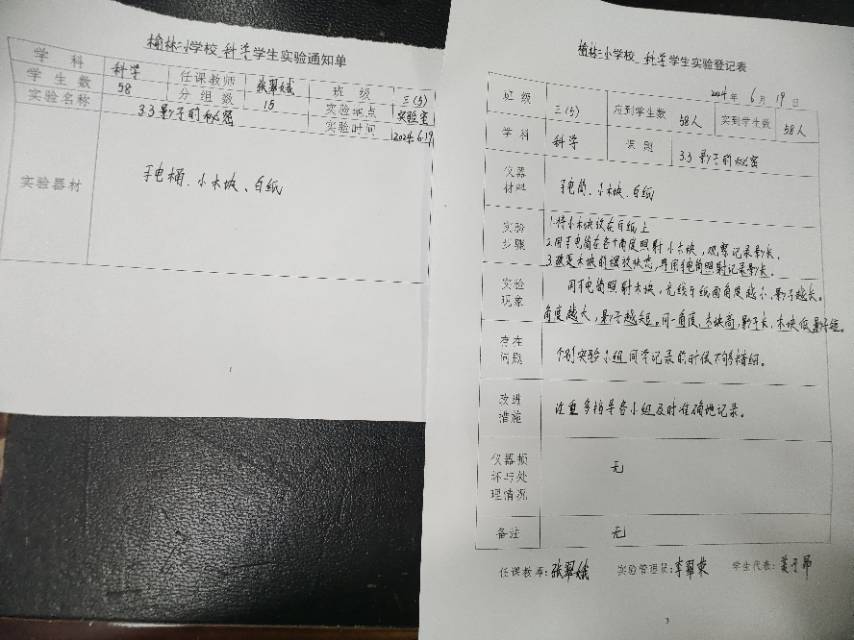 榆林二小学校 科学 学生实验通知单
学科 科学 任课教师 张翠娥 班级 三(5)
学生数 58 分组数 15 实验地点 实验室
实验名称 3.3影子的秘密 实验时间 2024.6.19
实验器材 手电桶、小木块、白纸
1
榆林二小学校 科学 学生实验登记表
2024年6月19日
班级 三(5) 应到学生数 58人 实到学生数 58人
学科 科学 课题 3.3影子的秘密
仪器材料 手电筒、小木块、白纸
实验步骤 1.将小木块放在白纸上
2.用手电筒在各个角度照射小木块,观察记录影长。
3.改变木块的摆放状态,再用手电筒照射记录影长。
实验现象 用手电筒照射木块,光线与纸面角度越小,影子越长。
角度越大,影子越短。同一角度,木块高,影子长,木块低影子短。
存在问题 个别实验小组同学记录的时候不够精细。
改进措施 注重多指导各小组及时准确地记录。
仪器损坏与处理情况 无
备注 无
任课教师:张翠娥 实验管理员:李翠荣 学生代表:
3